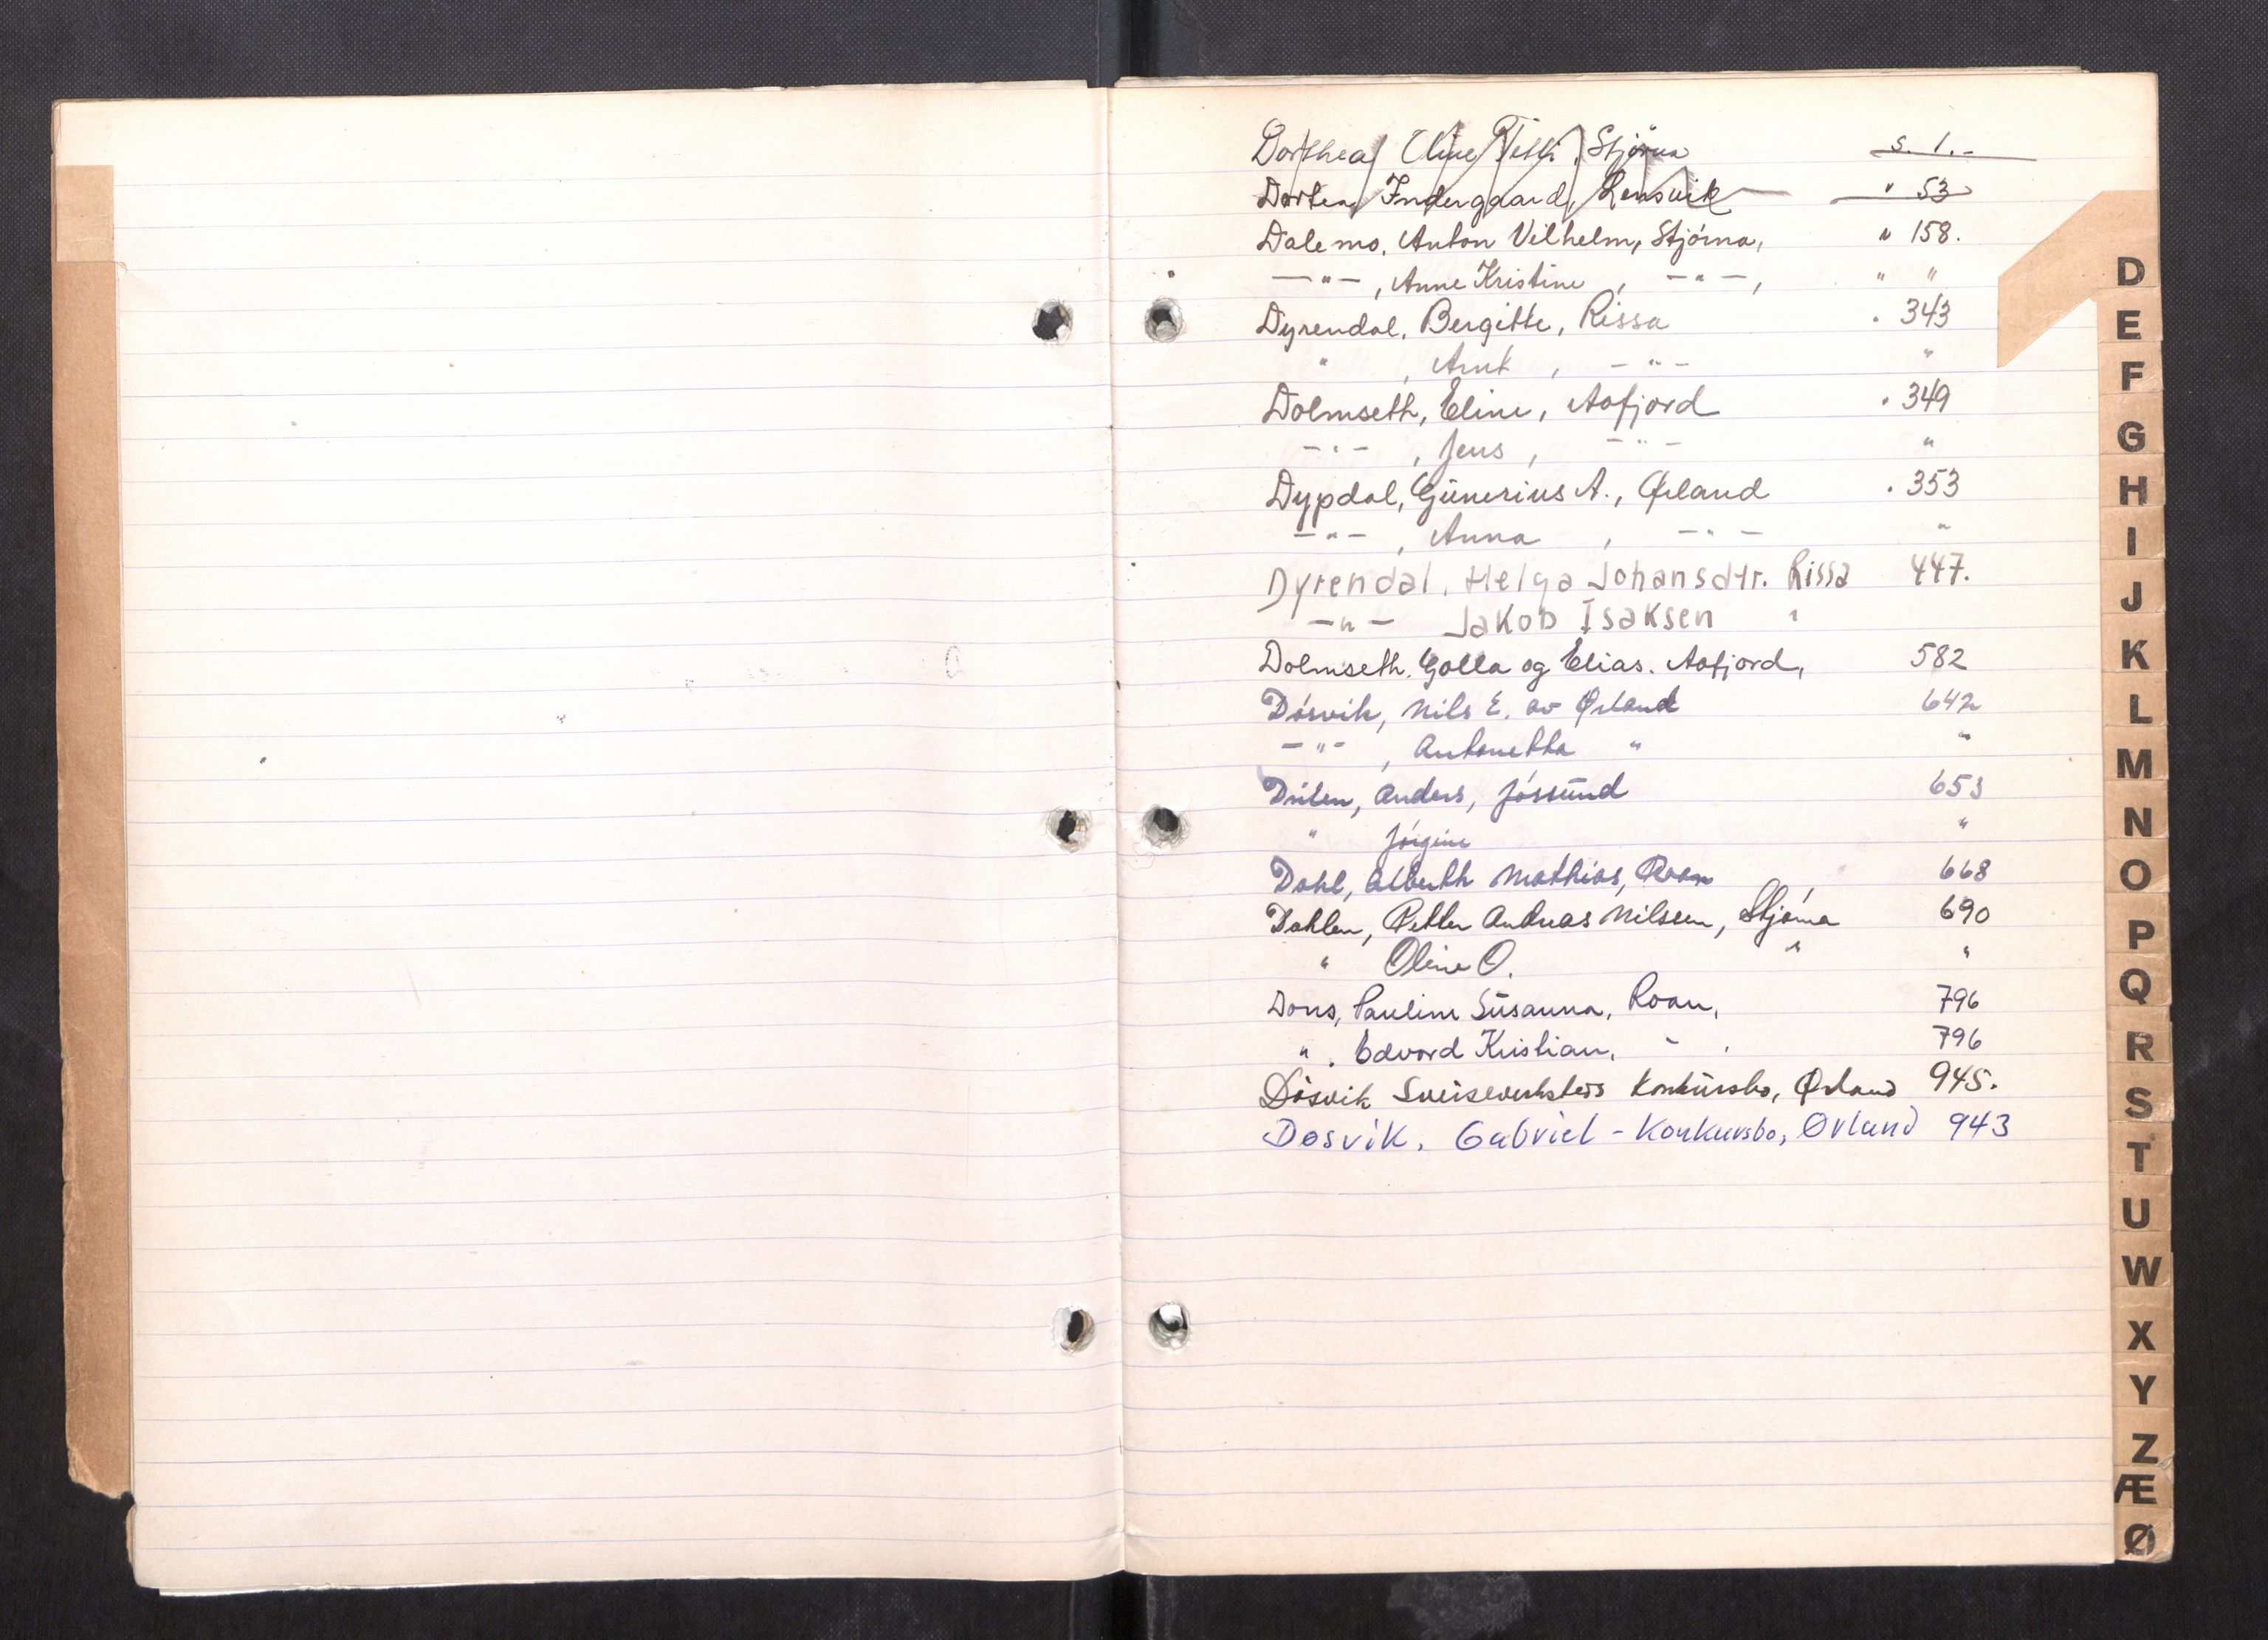 Dorthea Eline Fetti, Stjørna s. 1.-
Dortea Indergaard, Lensvik " 53
Dalemo, Anton Vilhelm, Stjórna, " 158.
—"—, Anne Kristine, —"—, " "
Dyrendal, Bergitte, Rissa . 343
" , Arnt , —"— "
Dolmseth, Eline, Aafjord . 349
—"— , Jens , —"— "
Dypdal, Günerius A., Ørland . 353
—"— , Anna , —"— "
Dyrendal, Helga Johansdtr. Rissa 447.
—"— Jakob Isaksen "
Dolmseth. Golla og Elias. Aafjord, 582
Dósvik, Nils E. av Ørland 642
—"— , Antonetta " "
Drilen, Anders, Jóssund 653
" Jórgine "
Dahl, Alberth Mathias, Roan 668
Dahlen, Petter Andreas Nilssen, Stjórna 690
" Oline O. " "
Dons, Pauline Süsanna, Roan, 796
" . Edvard Kristian, " . 796
Dósvik Sveiseverksteds konkürsbo, Ørland 945.
Døsvik. Gabriel - Konkursbo, Ørland 943
D
E
F
G
H
I
J
K
L
M
N
O
P
Q
R
S
T
U
W
X
Y
Z
Æ
Ø